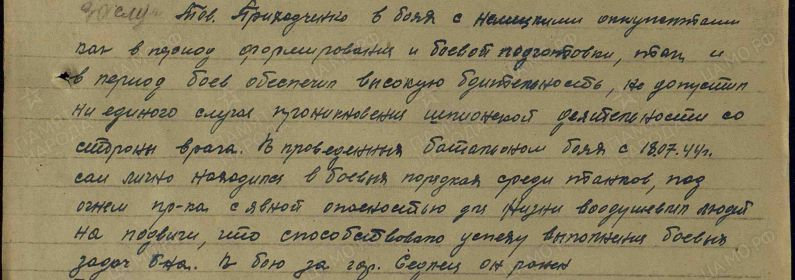 Тов. Приходченко в боях с немецкими оккупантами
как в период формирования и боевой подготовки, так и
в период боев обеспечил высокую бдительность, не допустил
ни единого случая проникновения шпионской деятельности со
стороны врага. В проведенных батальоном боях с 18.07.44г.
сам лично находился в боевых порядках среди танков, под
огнем пр-ка с явной опасностью для жизни воодушевлял людей
на подвиги, что способствовало успеху выполнения боевых
задач б-на. В бою за гор. Седлец он ранен